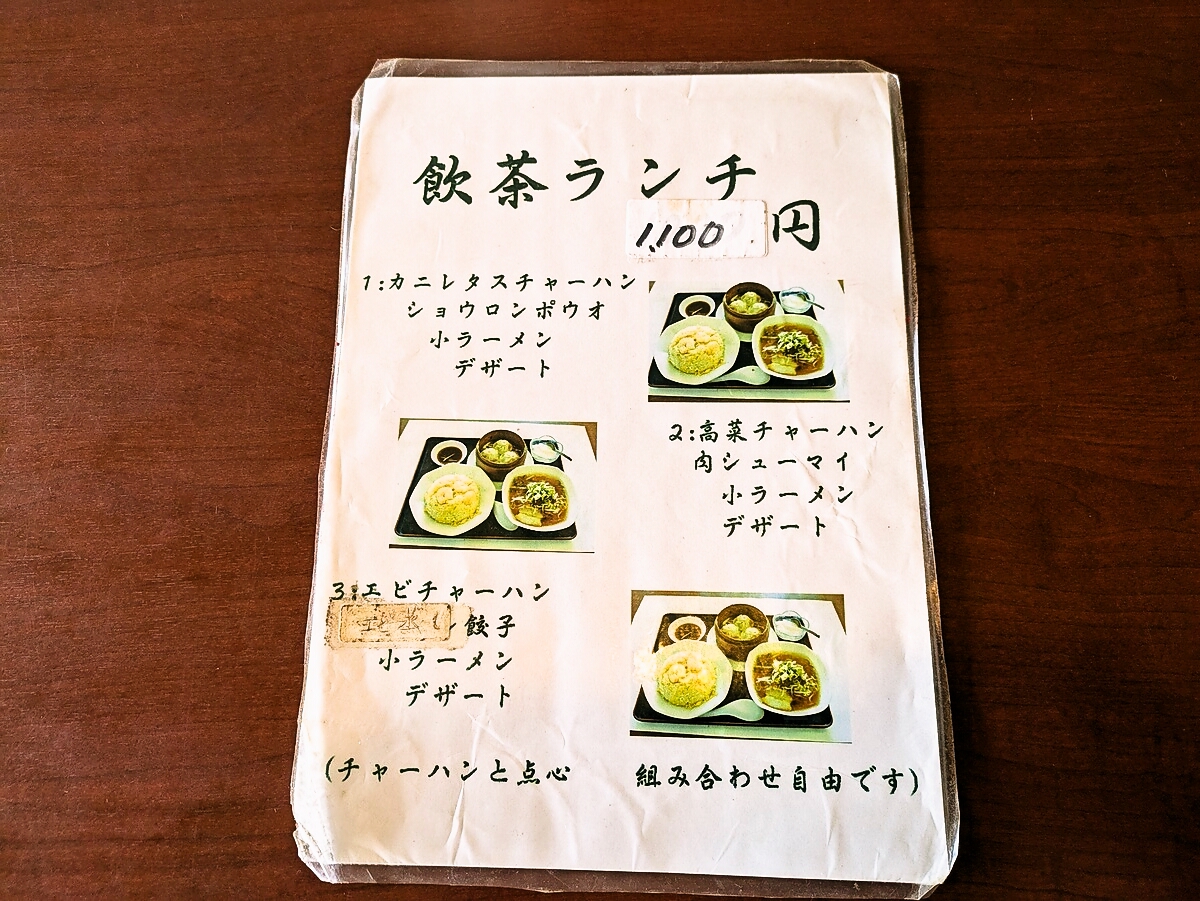 飲茶ランチ
1,100円
1:カニレタスチャーハン
ショウロンポウオ
小ラーメン
デザート
2:高菜チャーハン
肉シューマイ
小ラーメン
デザート
3:エビチャーハン
餃子
小ラーメン
デザート
(チャーハンと点心 組み合わせ自由です)